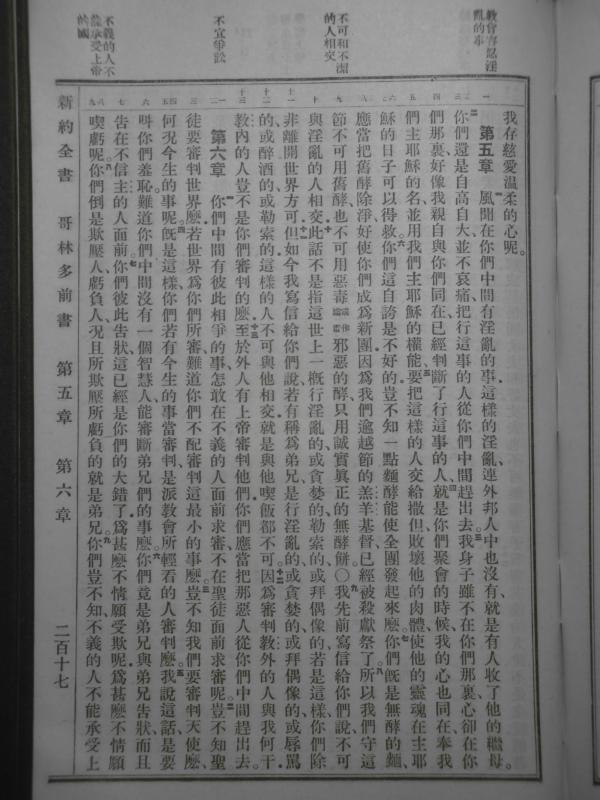 教會容忍淫
亂的事
不可和不潔
的人相交
不宜爭訟
不義的人不
能承受上帝
的國
我存慈愛溫柔的心呢。
第五章 風聞在你們中間有淫亂的事這樣的淫亂連外邦人中也沒有就是有人收了他的繼母。
你們還是自高自大並不哀痛把行這事的人從你們中間趕出去我身子雖不在你們那裏心卻在你
們那裏好像我親自與你們同在已經判斷了行這事的人就是你們聚會的時候我的心也同在奉我
們主耶穌的名並用我們主耶穌的權能要把這樣的人交給撒但敗壞他的肉體使他的靈魂在主耶
穌的日子可以得救你們這自誇是不好的豈不知一點麵酵能使全團發起來麽你們旣是無酵的麵
應當把舊酵除淨好使你們成爲新團因爲我們逾越節的羔羊基督已經被殺獻祭了所以我們守這
節不可用舊酵也不可用惡毒邪惡的酵只用誠實眞正的無酵餅〇我先前寫信給你們說不可
與淫亂的人相交此話不是指這世上一槪行淫亂的或貪婪的勒索的或拜偶像的若是這樣你們除
非離開世界方可但如今我寫信給你們說若有稱爲弟兄是行淫亂的或貪婪的或拜偶像的或辱駡
的或醉酒的或勒索的這樣的人不可與他相交就是與他喫飯都不可因爲審判教外的人與我何干
教內的人豈不是你們審判的麽至於外人有上帝審判他們你們應當把那惡人從你們中間趕出去
第六章 你們中間有彼此相爭的事怎敢在不義的人面前求審不在聖徒面前求審呢豈不知聖
徒要審判世界麽若世界爲你們所審難道你們不配審判這最小的事麽豈不知我們要審判天使麽
何況今生的事呢旣是這樣你們若有今生的事當審判是派教會所輕看的人審判麽我說這話是要
呌你們羞恥難道你們中間沒有一個智慧人能審斷弟兄們的事麽你們竟是弟兄與弟兄告狀而且
告在不信主的人面前你們彼此告狀這已經是你們的大錯了爲甚麽不情願受欺呢爲甚麽不情願
喫虧呢你們倒是欺壓人虧負人況且所欺壓所虧負的就是弟兄你們豈不知不義的人不能承受上
新約全書 哥林多前書 第五章 第六章 二百十七